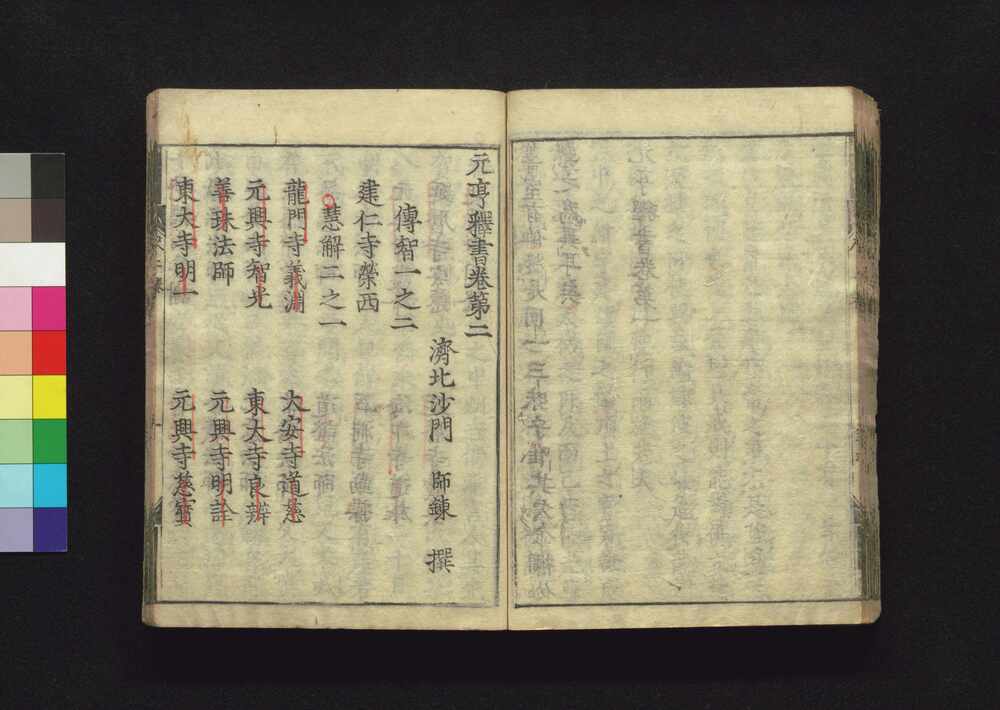 元亨釋書卷第二
濟北沙門 師鍊 撰
傳智一之二
建仁寺榮西
慧解二之一
龍門寺義淵 大安寺道慈
元興寺智光 東大寺良辨
善珠法師 元興寺明詮
東大寺明一 元興寺慈寶